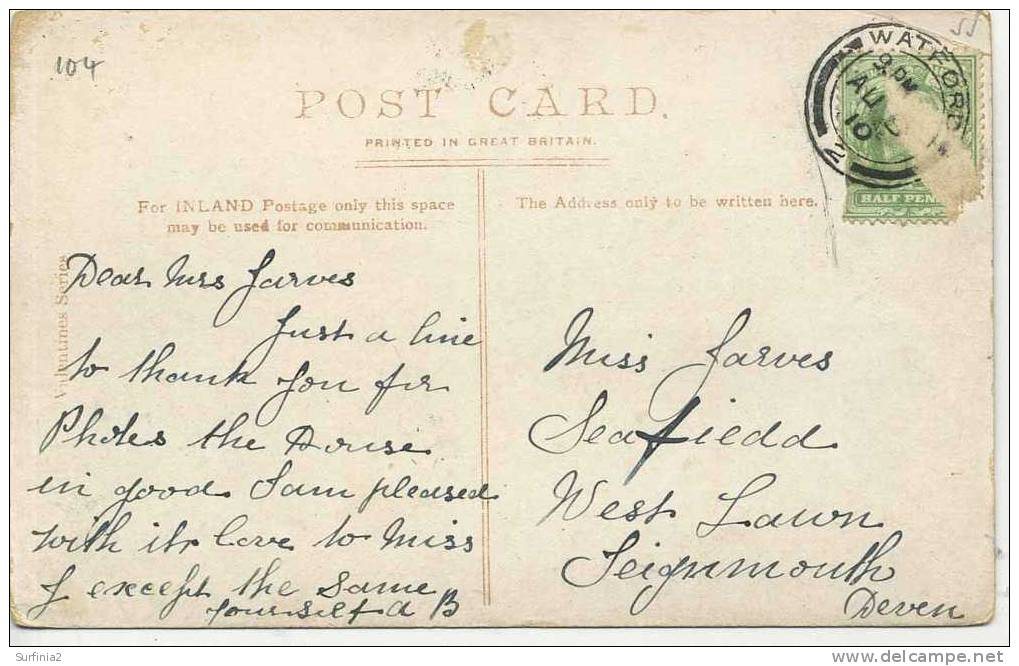 104
55
WATFORD
9 PM
AU
10
2
HALF PEN
POST CARD.
PRINTED IN GREAT BRITAIN.
For INLAND Postage only this space
may be used for communication.
The Address only to be written here.
Valentines Series
Dear Mrs Jarves
Just a line
to thank you for
Photes the House
in good I am pleased
with it love to Miss
J except the same
yourself A B
Miss Jarves
Seafiedd
West Lawn
Teignmouth
Deven
Surfinia2
www.delcampe.net